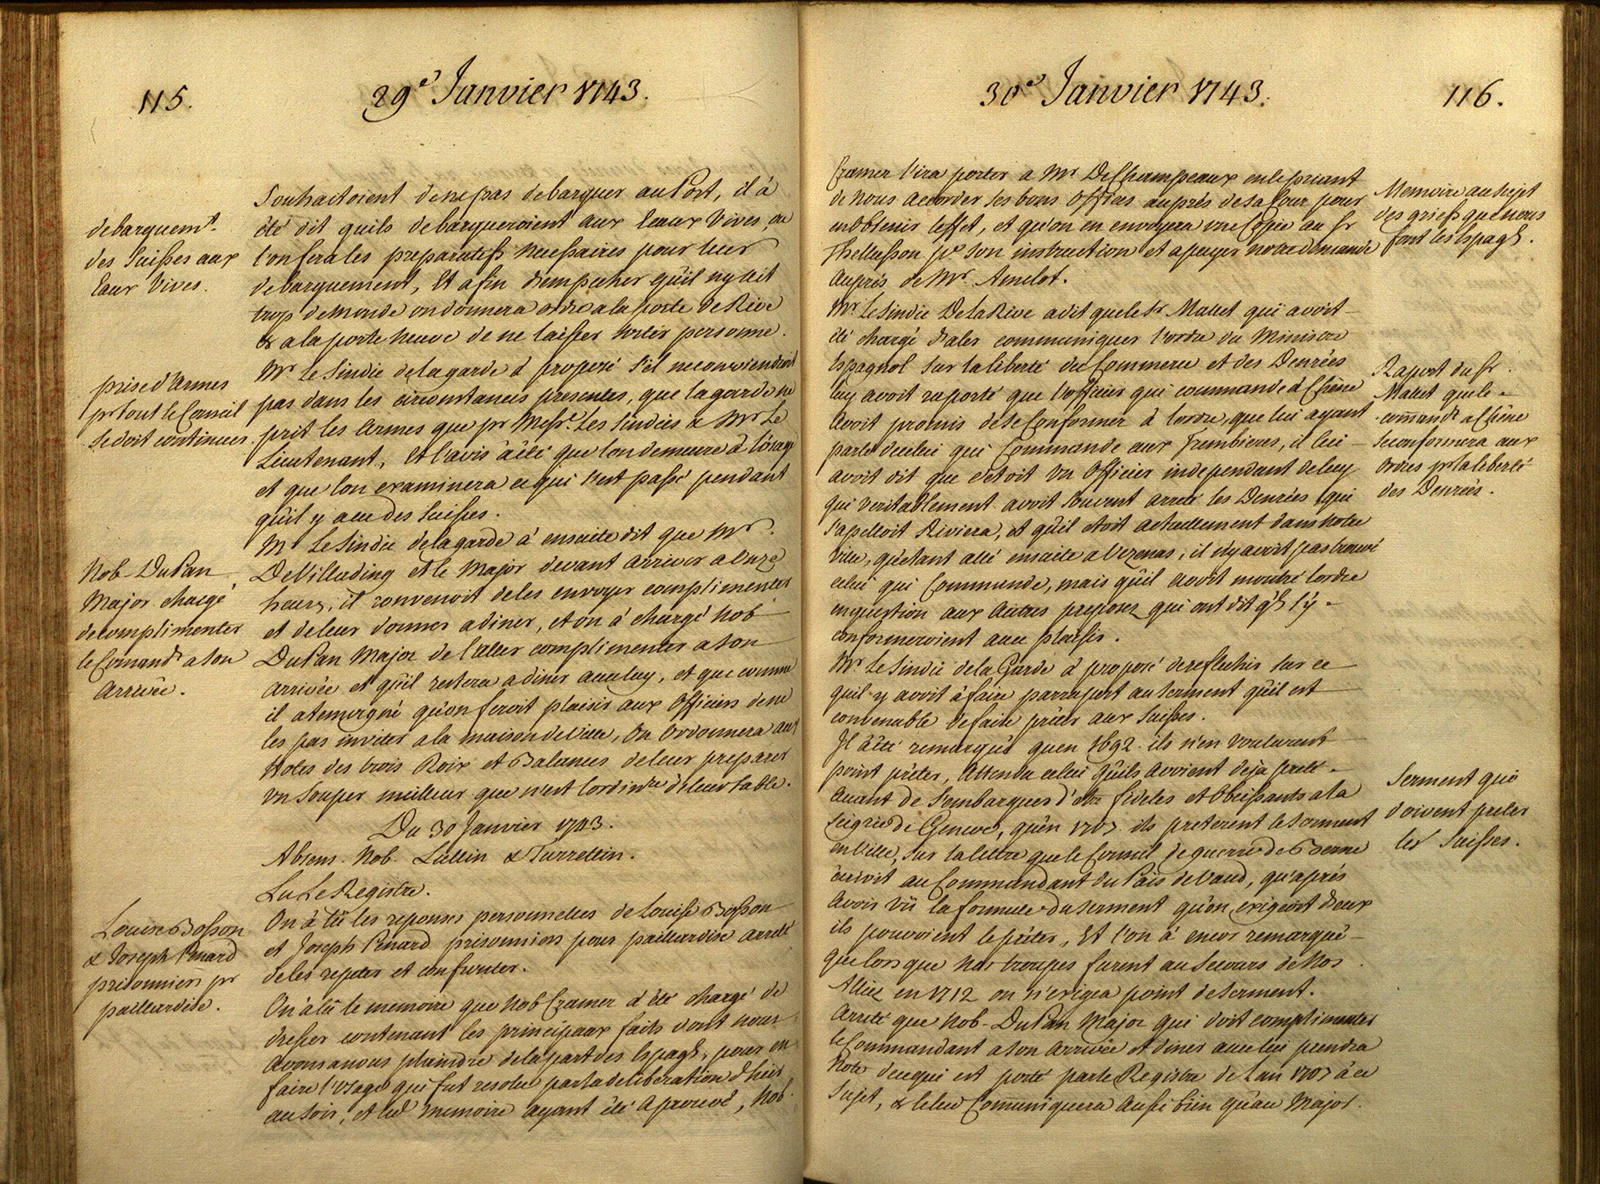 115.
29e Janvier 1743.
debarquemt.
des Suisses aux
Eaux Vives.
prise d'Armes
pr tout le Conseil
se doit continuer.
Nob. DuPan
Major chargé
de complimenter
le Comandt a son
Arrivée.
Louise Bosson
& Joseph Penard
prisonniers pr
paillardise.
Souhaitoient de ne pas debarquer au Port, il à
été dit quils debarqueroient aux Eaux Vives, ou
l'on fera les preparatifs necessaires pour leur
debarquement, Et afin dempecher qu'il ny ait
trop de monde on donnera ordre a la porte de Rive
& a la porte neuve de ne laisser sortir personne.
Mr. le Sindic de la garde à proposé s'il ne conviendroit
pas dans les circonstances presentes, que la garde ne
prit les Armes que pr Messrs. les Sindics & Mr. Le
Lieutenant, Et l'avis à été que l'on demeure à l'usage
et que lon examinera ce qui s'est passé pendant
qu'il y a eu des Suisses.
Mr. Le Sindic de la garde à ensuite dit que Mr.
DeVillading et le Major devant arriver a Onze
heures, il convenoit de les envoyer complimenter
et de leur donner a diner, et on à chargé Nob.
DuPan Major de l'aller complimenter a son
arrivée et qu'il restera a diner avec luy, et que comme
il a temoigné qu'on feroit plaisir aux Officiers de ne
les pas inviter a la maison de Ville, On Ordonnera aux
Hotes des trois Rois et Balances de leur preparer
un Souper meilleur que n'est l'ordinre de leur table.
Du 30 Janvier 1743.
Absens. Nob. Lullin & Turrettin.
Lu Le Registre.
On à lû les reponses personnelles de Louise Bosson
et Joseph Penard prisonniers pour paillardise arreté
de les repeter et confronter.
On à lû le memoire que Nob Cramer à été chargé de
dresser contenant les principaux faits dont nous
avons a nous plaindre de la part des Espagls, pour en
faire l'Usage qui fut resolu par la deliberation d'hier
au soir, et led. memoire ayant été Aprouvé, Nob.
30e Janvier 1743.
116.
Cramer l'ira porter a Mr. DeChampeaux en le priant
de nous accorder ses bons Offices auprés de sa Cour pour
en obtenir l'effet, et qu'on en envoyera une Copie au Sr
Thellusson pr son instruction et apuyer notre demande
Auprés de Mr. Amelot.
Mr. Le Sindic DelaRive a dit que le Sr. Mallet qui avoit
été chargé d'aler communiquer l'ordre du Ministre
Espagnol sur la liberté du Commerce et des Denrées
luy avoit raporté que l'officier qui commande à Chêne
Avoit promis de se conformer à l'ordre, que lui ayant
parlé de celui qui Commande aux, il lui
avoit dit que c'etoit un Officier independant de luy
qui veritablement avoit souvent arreté les Denrées qui
s'apelloit Riviera, et qu'il étoit actuellement dans notre
Ville, qu'etant allé ensuite a Vezenas, il n'y avoit pas trouvé
celui qui Commande, mais qu'il avoit montré l'ordre
en question aux Autres preposez qui ont dit qls s'y
conformeroient avec plaisir.
Mr. Le Sindic de la Garde à proposé de reflechir sur ce
quil y avoit à faire par raport au serment qu'il est
convenable de faire prêter aux Suisses.
Il à été remarqué quen 1692. ils n'en voulurent
point prêter, Attendu celui qu'ils Avoient déja preté
Avant de s'embarquer d'etre fideles et Obeissants a la
Seigrie de Geneve, qu'en 1707. ils preterent le serment
en Ville, sur la lettre que le Conseil de guerre de Berne
écrivit au Commandant du Païs de Vaud, qu'aprés
Avoir vû la formule du serment qu'on exigeoit d'eux
ils pouvoient le prêter, Et l'on à encor remarqué
que lors que nos troupes furent au Secours de Nos
Alliez en 1712 on n'exigea point de serment.
Arreté que Nob. DuPan Major qui doit complimenter
le Commandant a son Arrivée et diner avec lui prendra
Note de ce qui est porté par le Registre de l'an 1707 à ce
Sujet, & le leur Communiquera Aussi bien qu'au Major.
Memoire au sujet
des griefs que nous
font les Espagls.
Raport du Sr.
Mallet que le
comandt a Chêne
se conformera aux
Ordres pr la liberté
des Denrées.
Serment que
doivent preter
les Suisses.